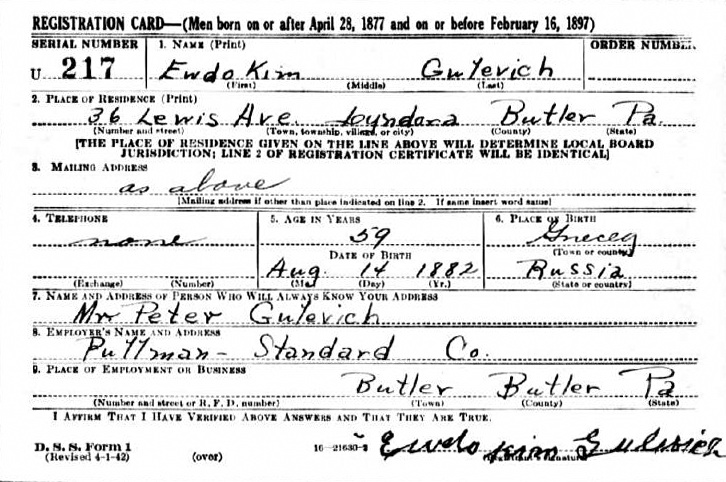 REGISTRATION CARD—(Men born on or after April 28, 1877 and on or before February 16, 1897)
SERIAL NUMBER 1. NAME (Print) ORDER NUMBER
U 217 Ewdo Kim Gulevich
(First) (Middle) (Last)
2. PLACE OF RESIDENCE (Print)
36 Lewis Ave. Lyndora Butler Pa.
(Number and street) (Town, township, village, or city) (County) (State)
[THE PLACE OF RESIDENCE GIVEN ON THE LINE ABOVE WILL DETERMINE LOCAL BOARD
JURISDICTION; LINE 2 OF REGISTRATION CERTIFICATE WILL BE IDENTICAL]
3. MAILING ADDRESS
as above
[Mailing address if other than place indicated on line 2. If same insert word same]
4. TELEPHONE 5. AGE IN YEARS 6. PLACE OF BIRTH
none 59
DATE OF BIRTH (Town or county)
Aug. 14 1882 Russia
(Exchange) (Number) (Mo.) (Day) (Yr.) (State or country)
7. NAME AND ADDRESS OF PERSON WHO WILL ALWAYS KNOW YOUR ADDRESS
Mr Peter Gulevich
8. EMPLOYER'S NAME AND ADDRESS
Pullman - Standard Co.
9. PLACE OF EMPLOYMENT OR BUSINESS
Butler Butler Pa
(Number and street or R. F. D. number) (Town) (County) (State)
I AFFIRM THAT I HAVE VERIFIED ABOVE ANSWERS AND THAT THEY ARE TRUE.
D. S. S. Form 1
(Revised 4-1-42) (over) 16—21630-2 Ewdo Kim Gulevich